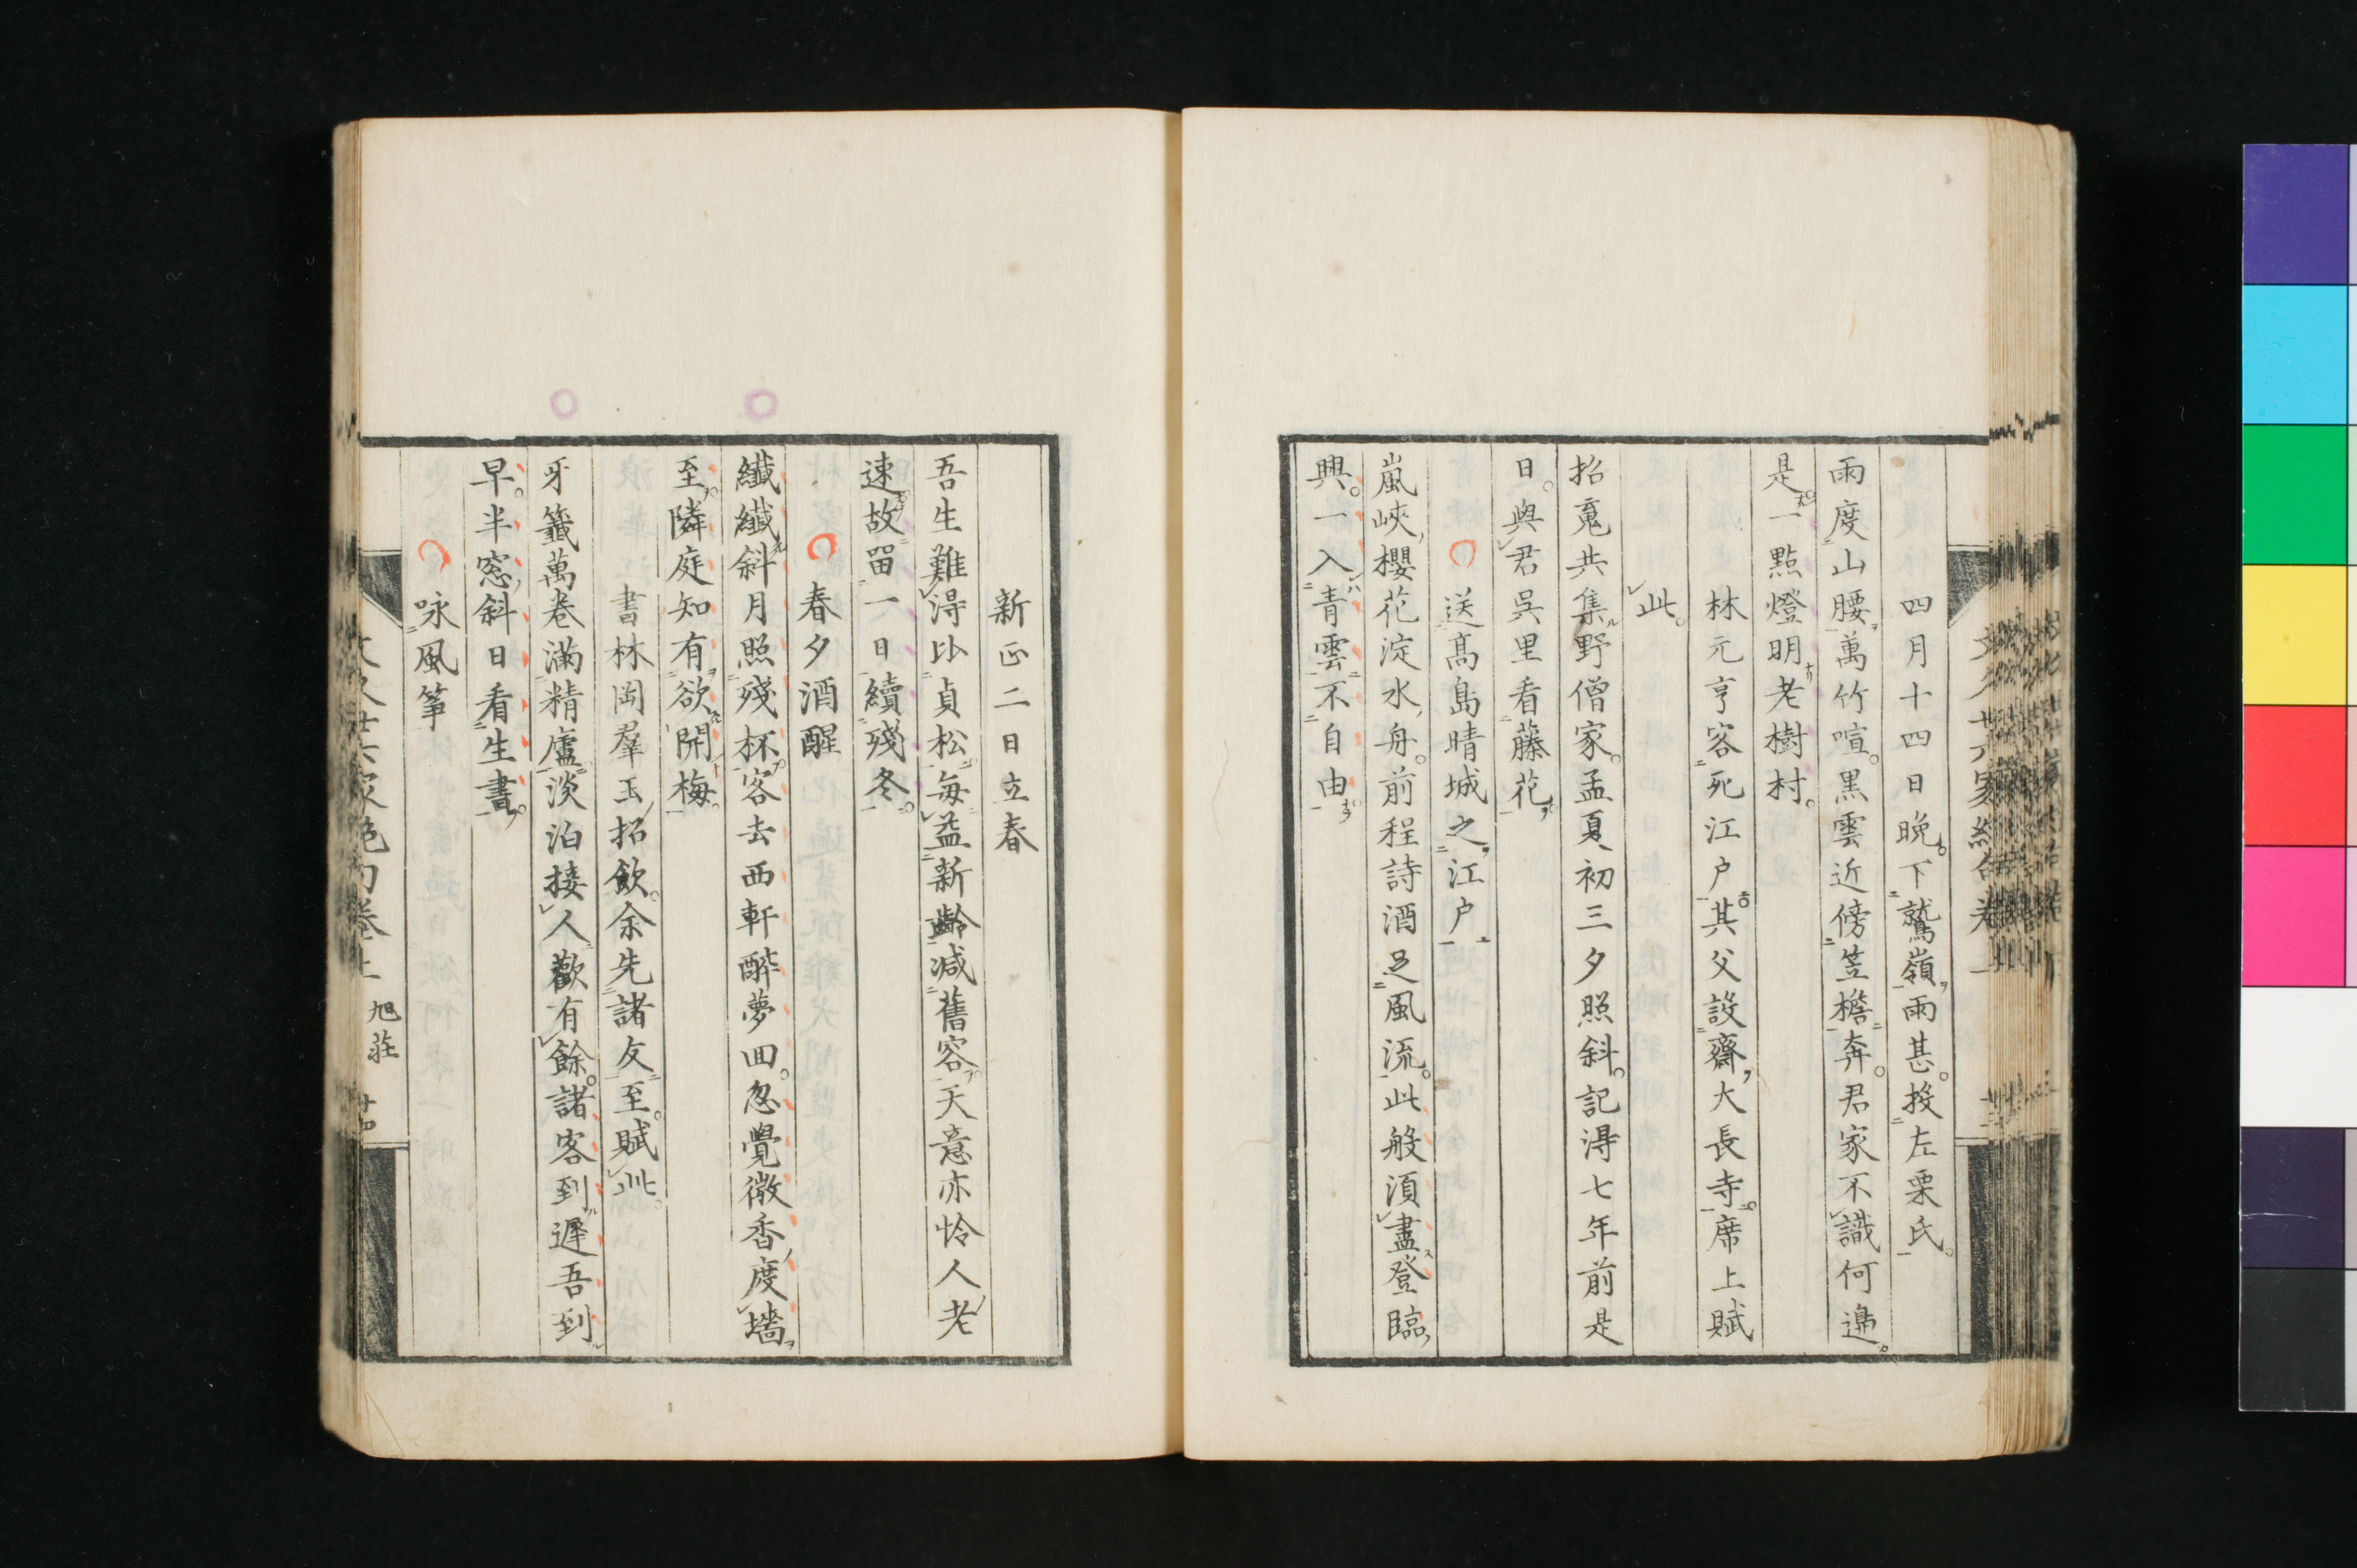 四月十四日晩下鷲嶺雨甚投左栗氏
雨度山腰萬竹喧黒雲近傍笠檐奔君家不識何邊
是一點燈明老樹村
林元亨客死江户其父設齋大長寺席上賦
此
招䰟共集野僧家孟夏初三夕照斜記得七年前是
日與君呉里看藤花
送髙島晴城之江户
嵐峽櫻花淀水舟前程詩酒足風流此般湏盡登臨
興一入青雲不自由
新正二日立春
吾生難得比貞松毎益新齡減舊容天意亦怜人老
速故留一日續殘冬
春夕酒醒
纎纎斜月照殘杯客去西軒醉夢回忽覺微香度墻
至隣庭知有欲開梅
書林岡羣玉招飲余先諸友至賦此
牙籤萬巻滿精廬淡泊接人歡有餘諸客到遲吾到
早半窓斜日看生書
咏風筝
文久廿六家絶句巻上 旭荘 廿四